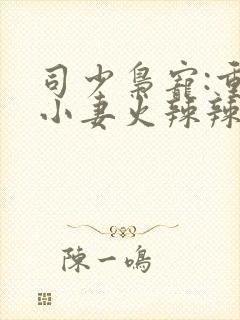 司少梟寵:重
小妻火辣辣
陳一鳴